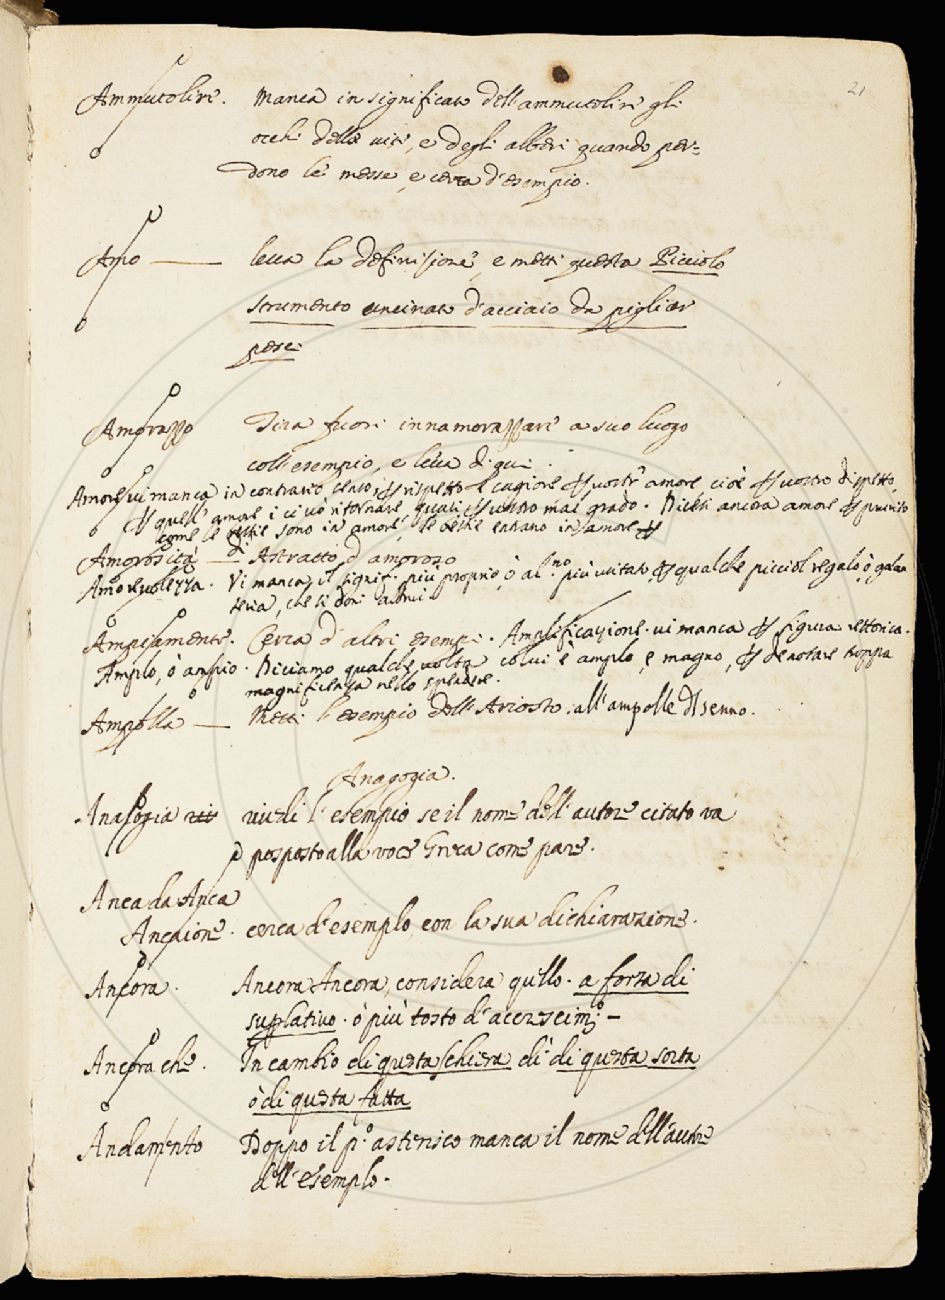 21
Ammutolire. Manca in significato dell'ammutolire gli
occhi delle viti, e degli alberi quando per=
dono le messe, e cerca d'esempio.
Amo leva la definisione, e metti questa Picciolo
strumento uncinato d'acciaio da pigliar
pesci
Amorazzo Tira fuori innamorazzare a suo luogo
coll'esempio, e leva di qui.
Amore vi manca in contrario senso, rispetto e cagione vostro amore cioè vostro dispetto,
quell'amore i ci vo ritornare, quasi vostro mal grado. Dicesi ancora amore prurito
come le bestie sono in amore, le bestie entrano in amore
Amorosità di Astratto d'amoroso
Amorevolezza. Vi manca il signif. più proprio, ò al.no più usitato, qualche picciol regalo, ò galan
teria, che si doni altrui.
Ampiamente. Cerca d'altri esempi. Amplificazione. vi manca figura rettorica.
Amplo, o ampio. Diciamo qualche volta colui è amplo, e magno, denotare troppa
magnificenza nello spendere.
Ampolla Metti l'esempio dell'Ariosto. all'ampolle di senno.
Anagogia.
Analogia vedi l'esempio se il nome dell'autore citato va
posposto alla voce Greca come pare.
Anca da Anca
Ancaione. cerca d'esemplo, con la sua dichiarazione.
Ancora. Ancora Ancora, considera quello. a forza di
suplativo. ò più tosto d'accrescim.o
Ancora che. In cambio di questa schiera dì di questa sorta
ò di questa fatta
Andamento Doppo il p.o asterisco manca il nome dell'autore
dell'esemplo.